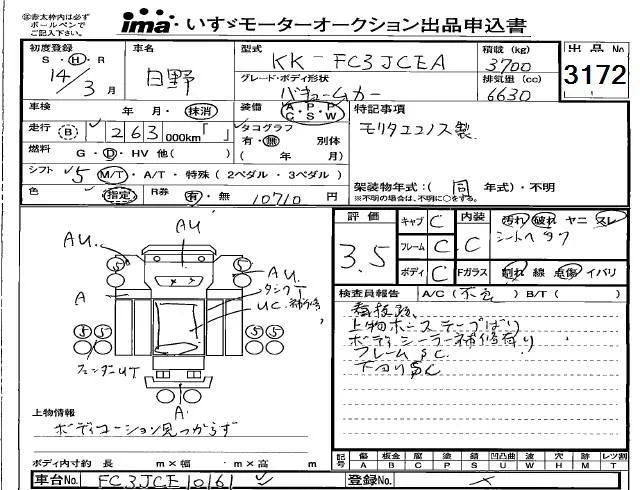 ㊟赤太枠内は必ず
ボールペンで
ご記入ください。
ima いすゞモーターオークション出品申込書
初度登録 車名 型式 KK-FC3JCEA 積載(kg) 出品No
S・H・R 3700
14/3月 日野 グレード・ボディ形状 排気量(cc) 3172
バキュームカー 6630
車検 年 月・抹消 装備 A・P・P C・S・W 特記事項
走行 B 263 000km「 」 タコグラフ モリタエコノス製
有・無 別体
燃料 G・D・HV 他( ) ( 年 月)
シフト 5 M/T・A/T・特殊(2ペダル・3ペダル)
架装物年式:(同 年式)・不明
色 指定 R券 有・無 10710円 ※不明の場合は、不明に○をする。
評価 キャブ C 内装 汚れ 破れ ヤニ スレ
3.5 フレーム C C シートヘタリ
ボディ C Fガラス 割れ 線 点傷 イバリ
AU
AU. 5 5 AU
タンクT
A UC 補修有
5 5 5 5
フェンダーUT
A
検査員報告 A/C(不良) B/T( )
上物ホーステープばり
ボディシーラー補修有り
フレームSC
下回りSC
上物情報
ボディコーション見つからず
記号 傷 板金 腐 塗 錆 凹凸曲 波 穴 跡 目 レツ割
A B C P S U W H X M T
ボディ内寸約 長 m×幅 m×高 m
車台No. FC3JCE10161 登録No. ×